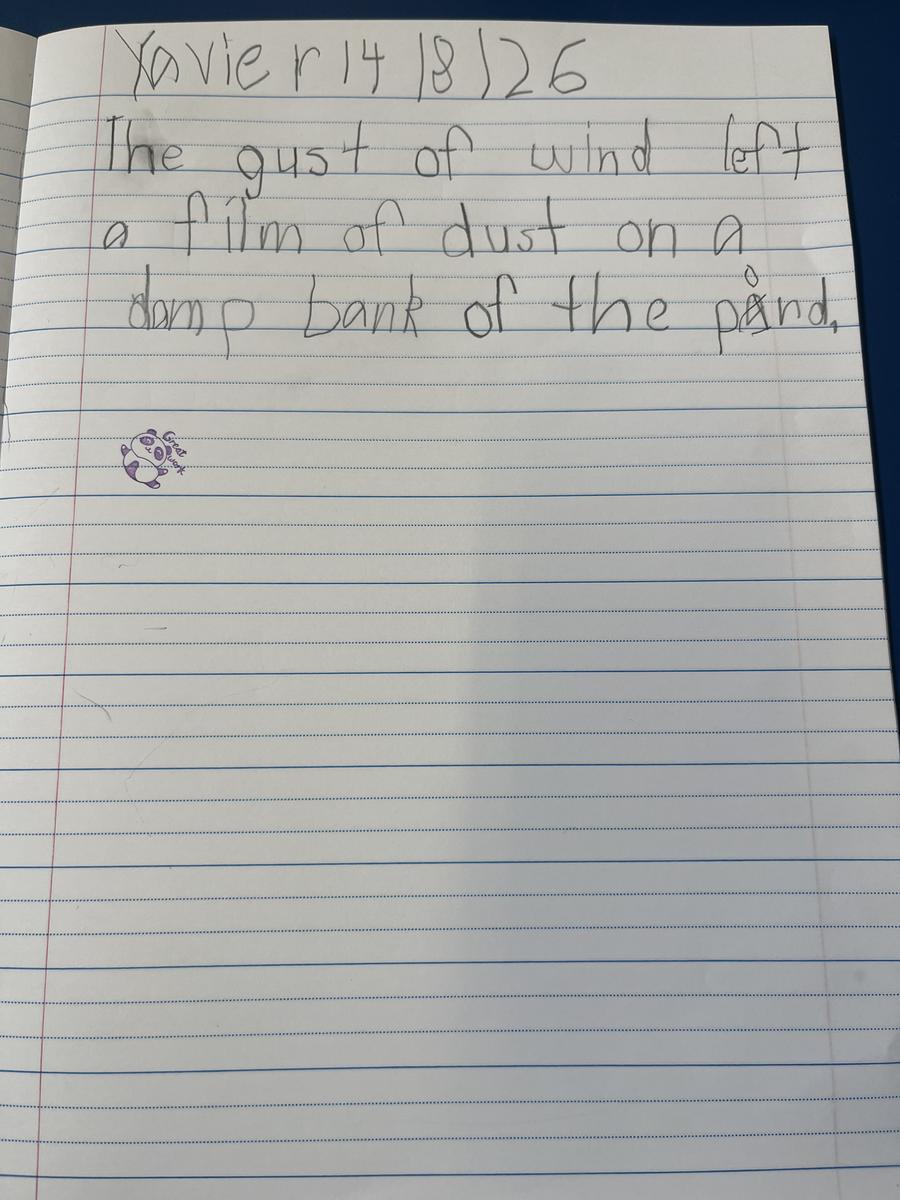 Xavier 14/8/26
The gust of wind left
a film of dust on a
damp bank of the pond.
Great
work